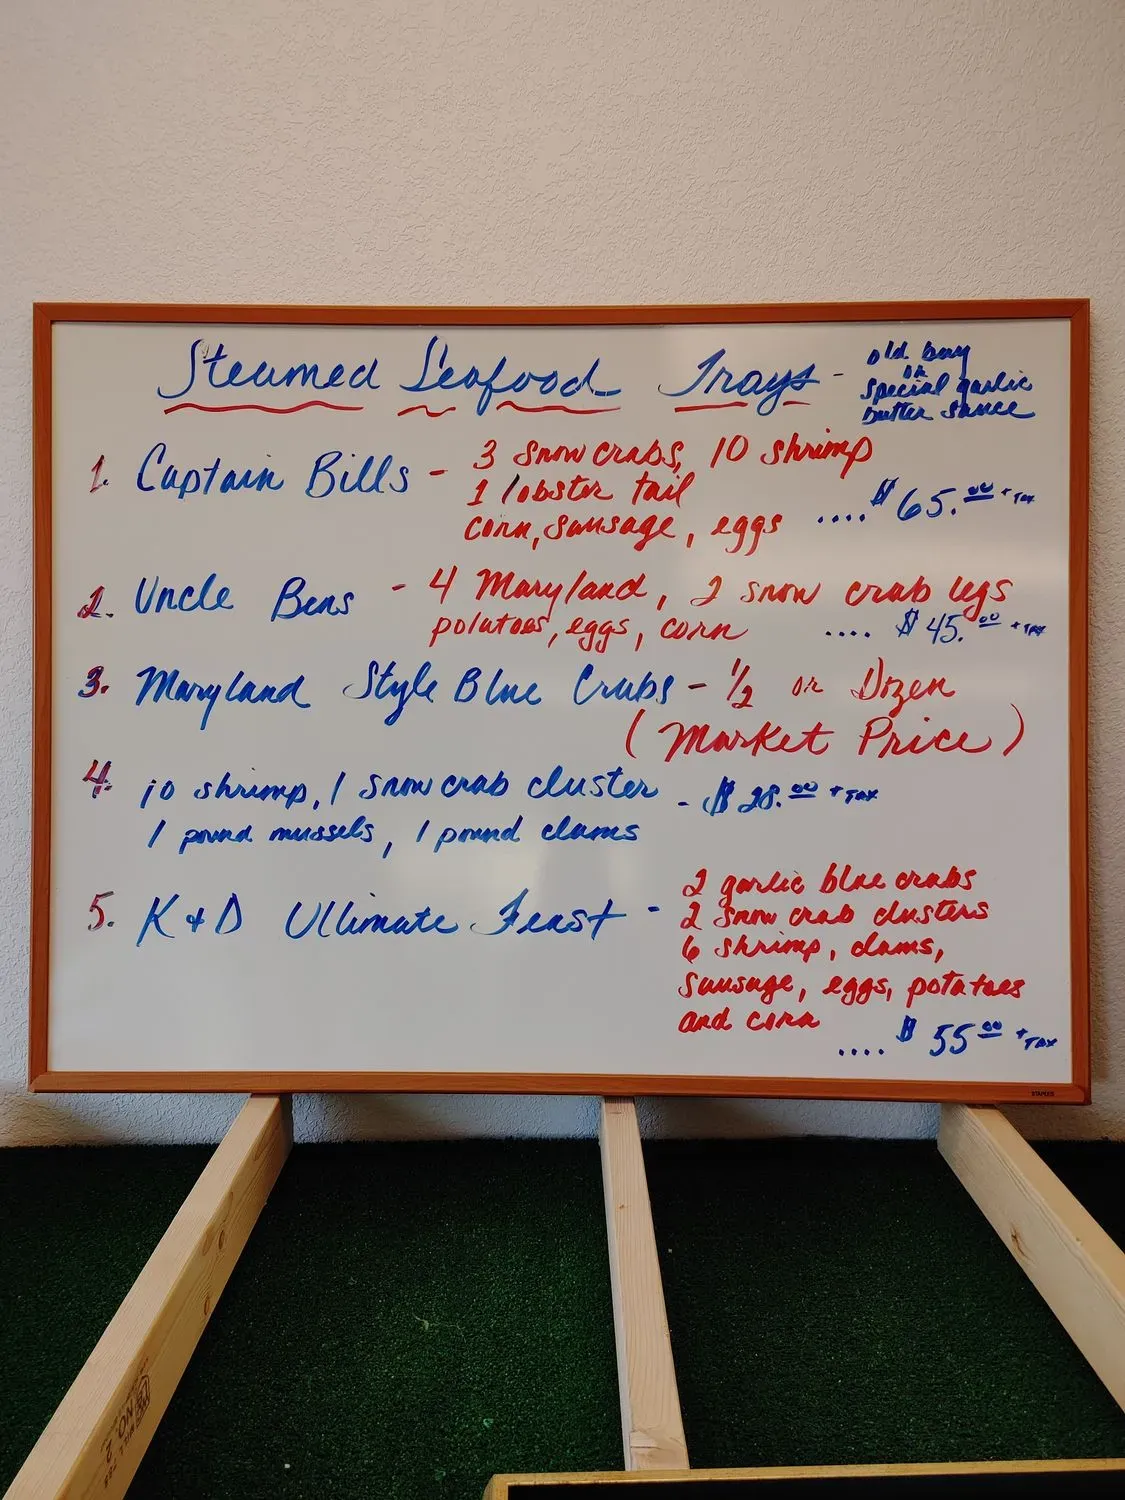 Steamed Seafood Trays - old bay
or
special garlic
butter sauce
1. Captain Bills - 3 snow crabs, 10 shrimp
1 lobster tail
corn, sausage, eggs .... $65.00 + Tax
2. Uncle Bens - 4 Maryland, 2 snow crab legs
potatoes, eggs, corn .... $45.00 + Tax
3. Maryland Style Blue Crabs - 1/2 or Dozen
(Market Price)
4. 10 shrimp, 1 snow crab cluster - $28.00 + Tax
1 pound mussels, 1 pound clams
5. K + D Ultimate Feast - 2 garlic blue crabs
2 snow crab clusters
6 shrimp, clams,
sausage, eggs, potatoes
and corn
.... $55.00 + Tax
STAPLES
NO. 2